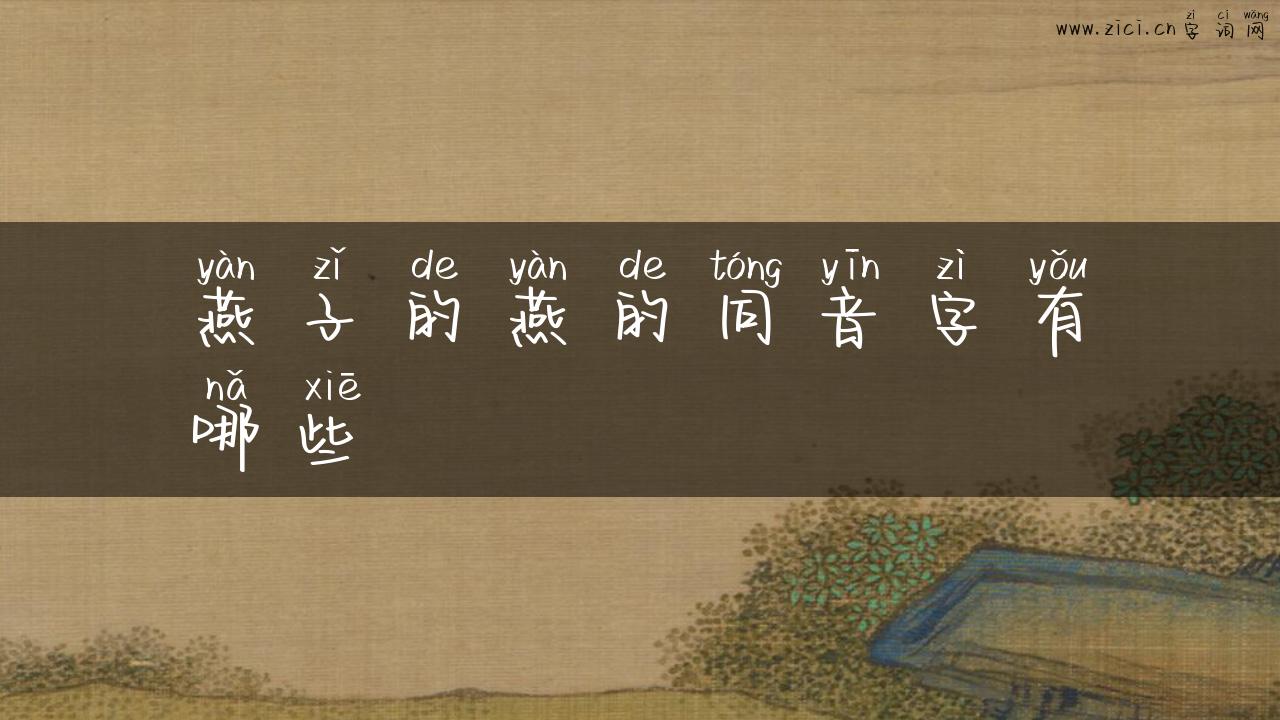 zì cí wǎng
www.zici.cn字词网
yàn zǐ de yàn de tóng yīn zì yǒu
燕子的燕的同音字有
nǎ xiē
哪些